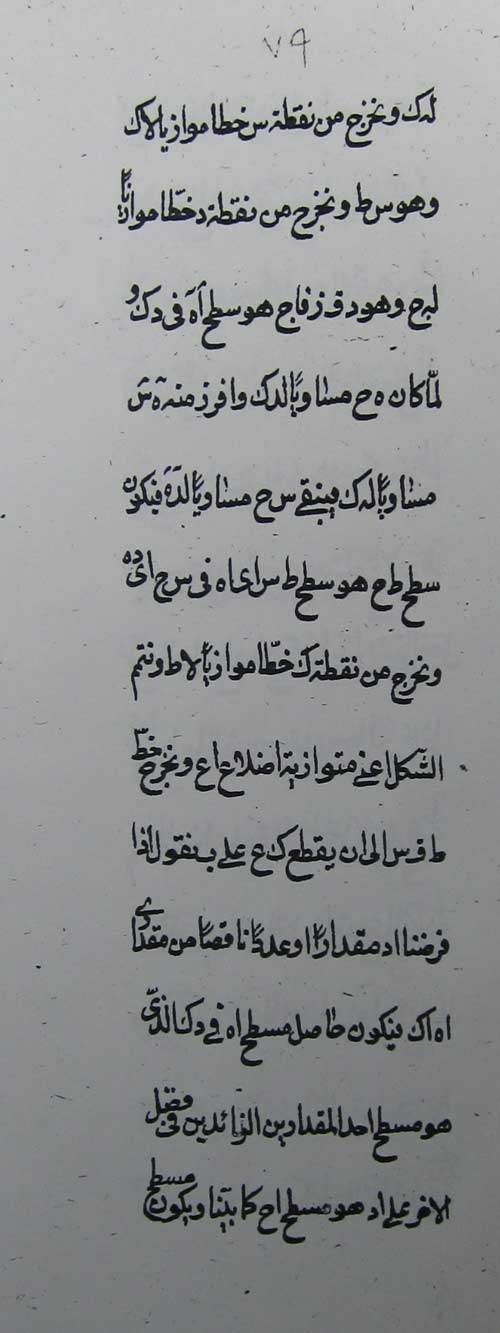 ٧٩
له ك ونخرج من نقطة س خطا موازيا لاك
وهو س ط ونخرج من نقطة د خطّا موازيًا
لہ ح وهو د ق ز فاج هو سطح اه فى د ك و
لمّا كان ه ح مساويًا لدك وافرز منه ه س
مساويًا له ك فيبقے س ح مساويًا لده فيكون
سطح ط ح هو سطح ط س اى اه فى س ح اى ده
ونخرج من نقطة ك خطّا موازيًا لاط ونتم
الشّكل اعنے متوازية اضلاع اع ونخرج خطّ
ط ق س الى ان يقطع ك ع علے ب فنقول اذا
فرضنا اد مقدارًا او عددًا ناقصًا من مقدارى
اه اك فيكون حاصل مسطح اه فے دك الذى
هو مسطح احد المقدارين الزائدين فى فضل
الاخر علے اد هو مسطح اح كما بيّنا ويكون مسطح